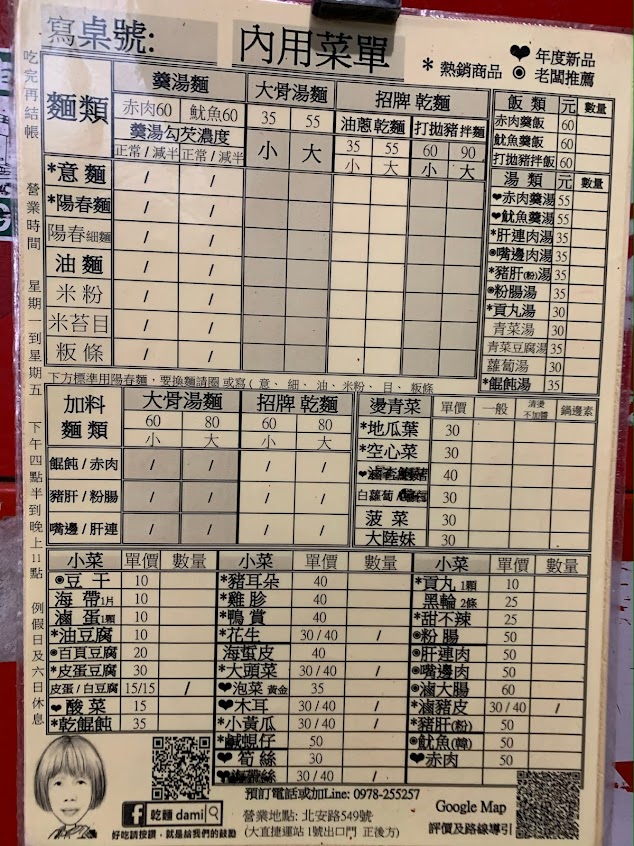 寫桌號:
內用菜單
❤ 年度新品
* 熱銷商品 ◉ 老闆推薦
吃完再結帳 營業時間 星期 到星期五 下午四點半到晚上11點 例假日及六日休息
麵類 羹湯麵 大骨湯麵 招牌 乾麵
赤肉60 魷魚60 35 55 油蔥乾麵 打拋豬拌麵
羹湯勾芡濃度 小 大 35 55 60 90
正常 / 減半 正常 / 減半 小 大 小 大
*意 麵 / /
*陽春麵 / /
陽春細麵 / /
油 麵 / /
米 粉 / /
米苔目 / /
粄 條 / /
飯 類 元 數量
赤肉羹飯 60
魷魚羹飯 60
打拋豬拌飯 60
湯 類 元 數量
❤赤肉羹湯 55
❤魷魚羹湯 55
*肝連肉湯 35
◉嘴邊肉湯 35
*豬肝(粉)湯 35
◉粉腸湯 35
*貢丸湯 30
青菜湯 30
青菜豆腐湯 35
蘿蔔湯 30
*餛飩湯 35
下方標準用陽春麵，要換麵請圈 或寫 ( 意、 細、 油、 米粉、 目、 粄條
加料麵類 大骨湯麵 招牌 乾麵
60 80 60 80
小 大 小 大
餛飩 / 赤肉 / / / /
豬肝 / 粉腸 / / / /
嘴邊 / 肝連 / / / /
燙青菜 單價 一般 清燙不加醬 鍋邊素
*地瓜葉 30
*空心菜 30
40
白蘿蔔 / 30
菠 菜 30
大陸妹 30
小菜 單價 數量
◉豆 干 10
海 帶1片 10
滷 蛋1顆 10
*油豆腐 10
◉百頁豆腐 20
*皮蛋豆腐 30
皮蛋 / 白豆腐 15/15 /
❤酸 菜 15
*乾餛飩 35
小菜 單價 數量
*豬耳朵 40
*雞 胗 40
*鴨 賞 40
*花生 30 / 40 /
海蜇皮 40
*大頭菜 30 / 40 /
❤泡菜 黃金 35
❤木耳 30 / 40 /
*小黃瓜 30 / 40 /
*鹹蜆仔 50
❤筍 絲 30
❤海帶絲 30 / 40 /
小菜 單價 數量
*貢丸 1顆 10
黑輪 2條 25
*甜不辣 25
◉粉 腸 50
◉肝連肉 50
◉嘴邊肉 50
◉滷大腸 60
*滷豬皮 30 / 40 /
*豬肝(粉) 50
◉魷魚(韓) 50
❤赤肉 50
f 乾麵 dami
好吃請按讚，就是給我們的鼓勵
預訂電話或加Line: 0978-255257
營業地點: 北安路549號
(大直捷運站 1號出口門 正後方)
Google Map
評價及路線導引